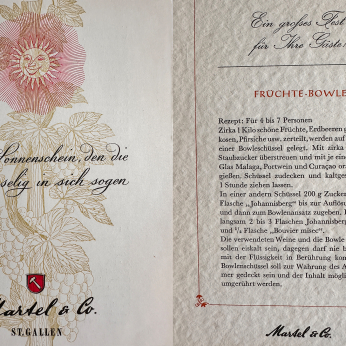 Sonnenschein, den die
selig in sich sogen
Martel & Co.
ST. GALLEN
Ein großes Fest
für Ihre Gäste!
FRÜCHTE-BOWLE
Rezept: Für 4 bis 7 Personen
Zirka 1 Kilo schöne Früchte, Erdbeeren
kosen, Pfirsiche usw. zerteilt, werden auf
einer Bowleschüssel gelegt. Mit zirka
Staubzucker überstreuen und mit je ein
Glas Malaga, Portwein und Curaçao
gießen. Schüssel zudecken und kaltge
1 Stunde ziehen lassen.
In einer andern Schüssel 200 g Zucker
Flasche „Johannisberg" bis zur Auflös
und dann zum Bowlenansatz zugeben.
langsam 2 bis 3 Flaschen Johannisber
und ¼ Flasche „Bouvier misec".
Die verwendeten Weine und die Bowle
sollen eiskalt sein, dagegen darf nie
mit der Flüssigkeit in Berührung kom
Bowlenschüssel soll zur Wahrung des A
mer gedeckt sein und der Inhalt mögli
umgerührt werden.
Martel & Co.